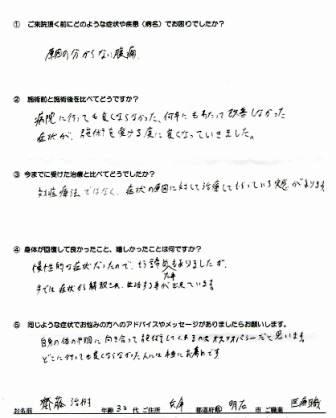 ① ご来院頂く前にどのような症状や疾患（病名）でお困りでしたか？
原因の分からない腹痛
② 施術前と施術後を比べてどうですか？
病院に行っても良くならなかった、何年にもわたって改善しなかった
症状が、施術を受ける度に良くなっていきました。
③ 今までに受けた治療と比べてどうでしたか？
対症療法ではなく、症状の原因に対して治療してもらっている実感があります
④ 身体が回復して良かったこと、嬉しかったことは何ですか？
慢性的な症状だったので、もう諦めもありましたが、
今では症状から解放され、生活する事が出来ています
⑤ 同じような症状でお悩みの方へのアドバイスやメッセージがありましたらお願いします。
自身の体の不調に向き合って施術をしてくれる
だと思います
どこに行っても良くならなかった人には本当にお薦めです
お名前 齋藤 治樹 年齢 30 ご住所 兵庫 都道府県 明石 市 ご職業 医療職